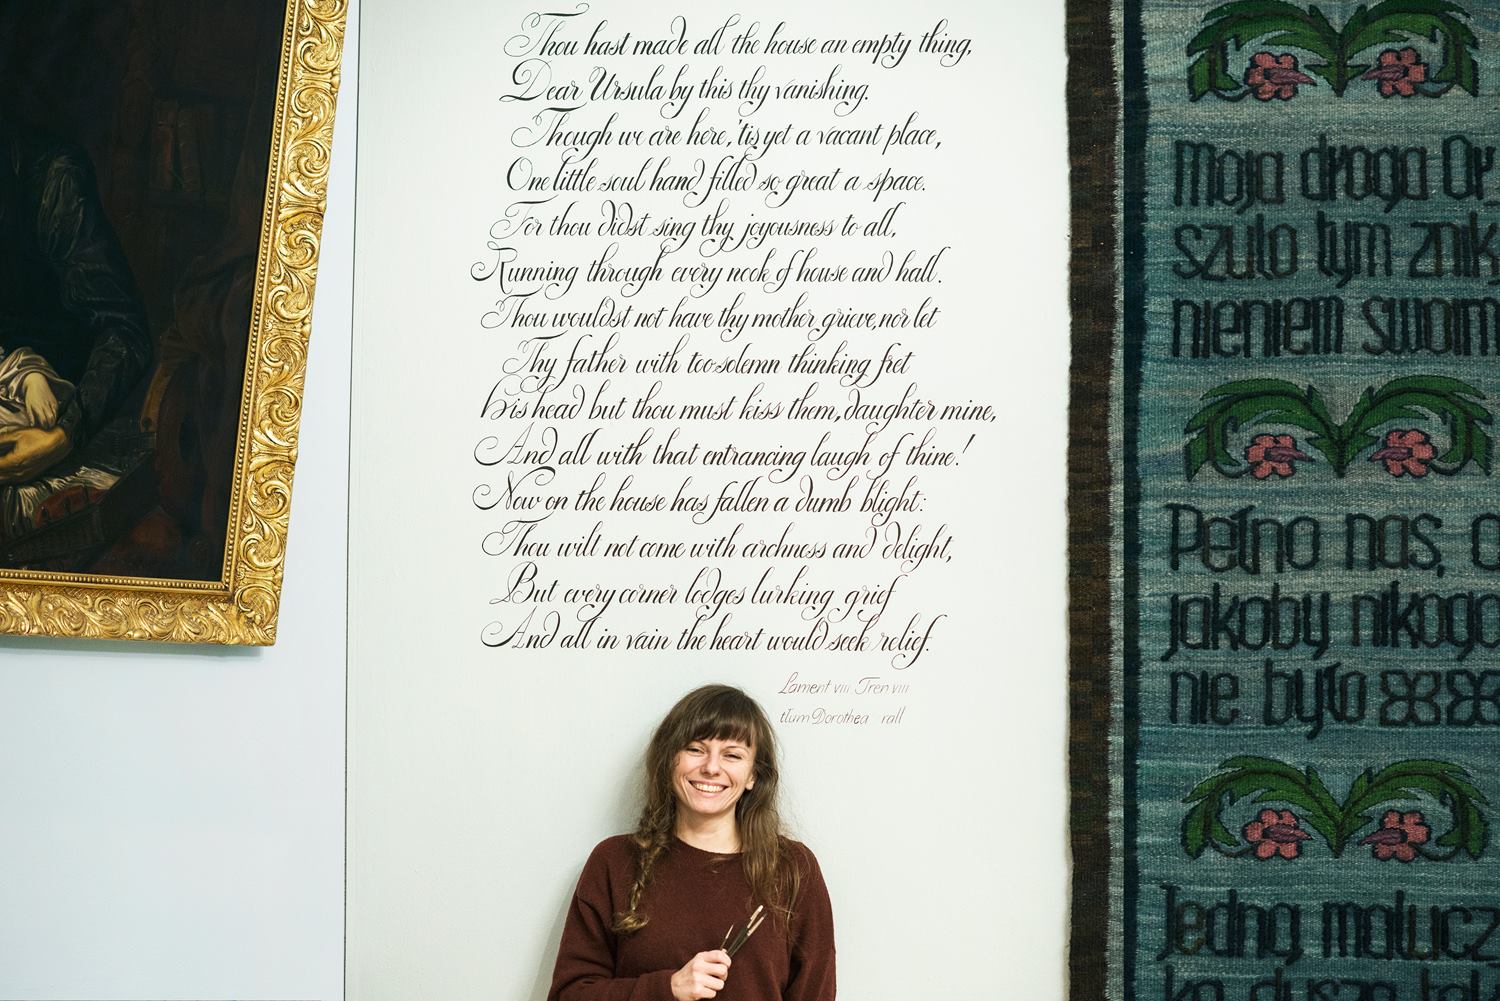 Thou hast made all the house an empty thing,
Dear Ursula by this thy vanishing.
Though we are here, 'tis yet a vacant place,
One little soul hand filled so great a space.
For thou didst sing thy joyousness to all,
Running through every nook of house and hall.
Thou wouldst not have thy mother grieve, nor let
Thy father with too solemn thinking fret
His head but thou must kiss them, daughter mine,
And all with that entrancing laugh of thine!
Now on the house has fallen a dumb blight:
Thou wilt not come with archness and delight,
But every corner lodges lurking grief
And all in vain the heart would seek relief.
Lament VIII Tren VIII
tłum Dorothea rall
Moja droga Or
szulo tym znik
nieniem swoim
Pełno nas, a
jakoby nikogo
nie było
Jedną malucz
ką duszą